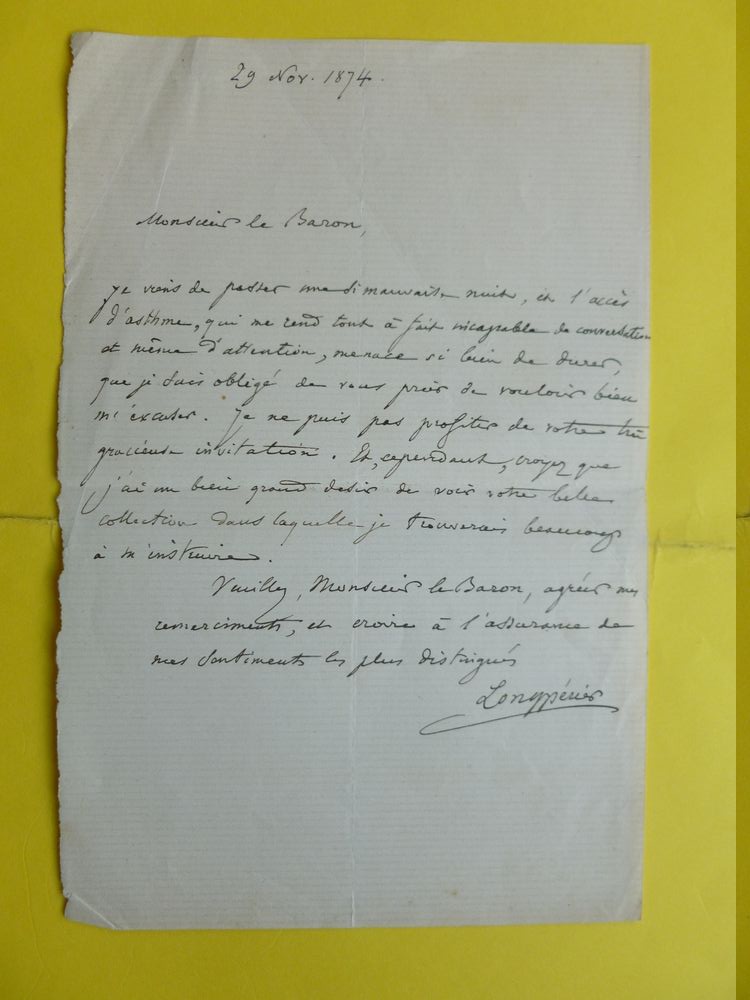 29 Nov. 1874.
Monsieur le Baron,
Je viens de passer une si mauvaise nuit, et l'accès
d'asthme, qui me rend tout à fait incapable de conversation
et même d'attention, menace si bien de durer,
que je suis obligé de vous prier de vouloir bien
m'excuser. Je ne puis pas profiter de votre très
gracieuse invitation. Et, cependant, croyez que
j'ai un bien grand desir de voir votre belle
collection dans laquelle je trouverais beaucoup
à m'instruire.
Veuillez, Monsieur le Baron, agréer mes
remerciments, et croire à l'assurance de
mes sentiments les plus distingués
Longpérier